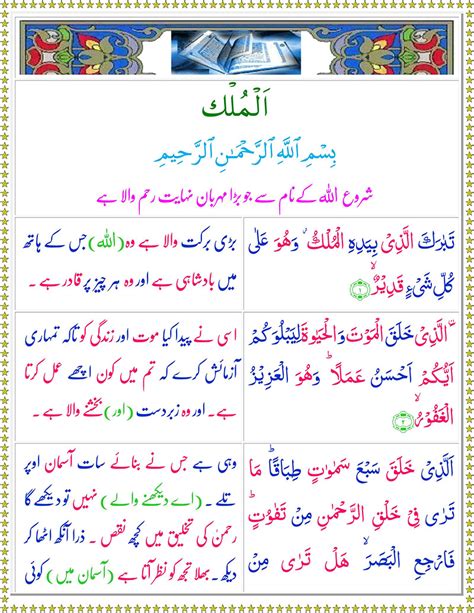 اَلْمُلْك
بِسْمِ اللّٰهِ الرَّحْمٰنِ الرَّحِيمِ
شروع اللہ کے نام سے جو بڑا مہربان نہایت رحم والا ہے
تَبٰرَكَ الَّذِىْ بِيَدِهِ الْمُلْكُ ۙ وَهُوَ عَلٰى
كُلِّ شَىْءٍ قَدِيْرٌ ۙ ﴿۱﴾
بڑی برکت والا ہے وہ (اللہ) جس کے ہاتھ
میں بادشاہی ہے اور وہ ہر چیز پر قادر ہے ۔
ۨالَّذِىْ خَلَقَ الْمَوْتَ وَالْحَيٰوةَ لِيَبْلُوَكُمْ
اَيُّكُمْ اَحْسَنُ عَمَلًا ؕ وَهُوَ الْعَزِيْزُ
الْغَفُوْرُ ۙ ﴿۲﴾
اسی نے پیدا کیا موت اور زندگی کو تاکہ تمہاری
آزمائش کرے کہ تم میں کون اچھے عمل کرتا
ہے۔ اور وہ زبردست (اور) بخشنے والا ہے ۔
الَّذِىْ خَلَقَ سَبْعَ سَمٰوٰتٍ طِبَاقًا ؕ مَا
تَرٰى فِىْ خَلْقِ الرَّحْمٰنِ مِنْ تَفٰوُتٍ ؕ
فَارْجِعِ الْبَصَرَ ۙ هَلْ تَرٰى مِنْ
وہی ہے جس نے بنائے سات آسمان اوپر
تلے ۔ (اے دیکھنے والے) نہیں تو دیکھے گا
رحمٰن کی تخلیق میں کچھ نقص ۔ ذرا آنکھ اٹھا کر
دیکھ۔ بھلا تجھ کو نظر آتا ہے (آسمان میں) کوئی